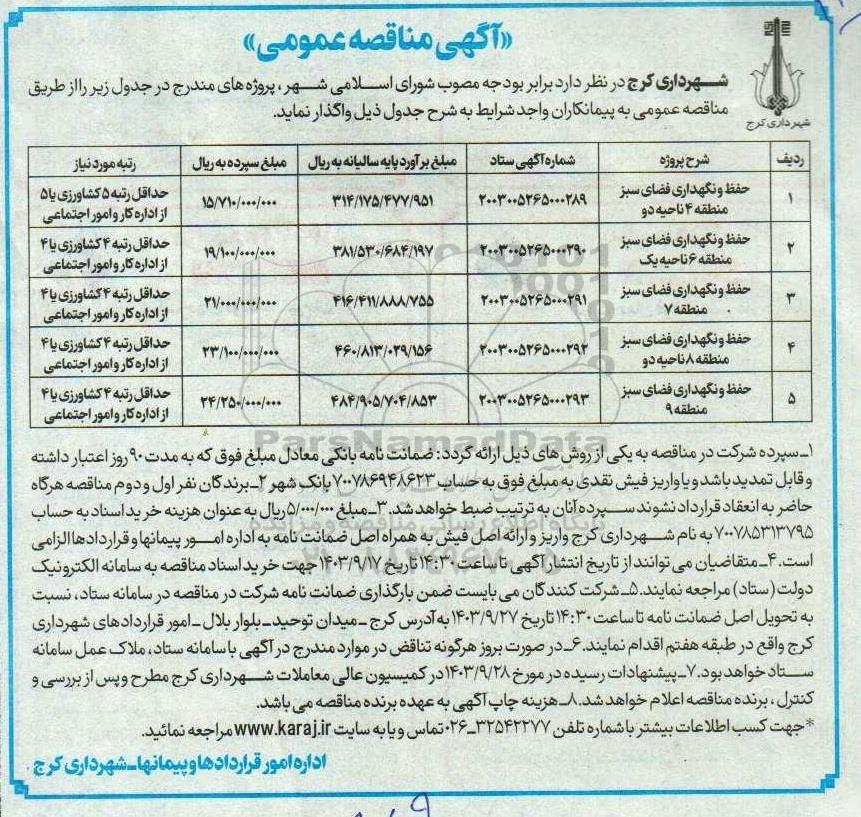 «آگهی مناقصه عمومی»
شهرداری کرج
شهرداری کرج در نظر دارد برابر بودجه مصوب شورای اسلامی شهر، پروژه های مندرج در جدول زیر را از طریق
مناقصه عمومی به پیمانکاران واجد شرایط به شرح جدول ذیل واگذار نماید.
ردیف شرح پروژه شماره آگهی ستاد مبلغ برآورد پایه سالیانه به ریال مبلغ سپرده به ریال رتبه مورد نیاز
۱ حفظ و نگهداری فضای سبز منطقه ۴ ناحیه دو ۲۰۰۳۰۰۵۲۶۵۰۰۰۲۸۹ ۳۱۴/۱۷۵/۴۷۷/۹۵۱ ۱۵/۷۱۰/۰۰۰/۰۰۰ حداقل رتبه ۵ کشاورزی یا ۵ از اداره کار و امور اجتماعی
۲ حفظ و نگهداری فضای سبز منطقه ۶ ناحیه یک ۲۰۰۳۰۰۵۲۶۵۰۰۰۲۹۰ ۳۸۱/۵۳۰/۶۸۴/۱۹۷ ۱۹/۱۰۰/۰۰۰/۰۰۰ حداقل رتبه ۴ کشاورزی یا ۴ از اداره کار و امور اجتماعی
۳ حفظ و نگهداری فضای سبز منطقه ۷ ۲۰۰۳۰۰۵۲۶۵۰۰۰۲۹۱ ۴۱۶/۴۱۱/۸۸۸/۷۵۵ ۲۱/۰۰۰/۰۰۰/۰۰۰ حداقل رتبه ۴ کشاورزی یا ۴ از اداره کار و امور اجتماعی
۴ حفظ و نگهداری فضای سبز منطقه ۸ ناحیه دو ۲۰۰۳۰۰۵۲۶۵۰۰۰۲۹۲ ۴۶۰/۸۱۳/۰۲۹/۱۵۶ ۲۳/۱۰۰/۰۰۰/۰۰۰ حداقل رتبه ۴ کشاورزی یا ۴ از اداره کار و امور اجتماعی
۵ حفظ و نگهداری فضای سبز منطقه ۹ ۲۰۰۳۰۰۵۲۶۵۰۰۰۲۹۳ ۴۸۴/۹۰۵/۷۰۴/۸۵۳ ۲۴/۲۵۰/۰۰۰/۰۰۰ حداقل رتبه ۴ کشاورزی یا ۴ از اداره کار و امور اجتماعی
ParsNamadData
۱ـ سپرده شرکت در مناقصه به یکی از روش های ذیل ارائه گردد: ضمانت نامه بانکی معادل مبلغ فوق که به مدت ۹۰ روز اعتبار داشته
و قابل تمدید باشد و یا واریز فیش نقدی به مبلغ فوق به حساب ۷۰۰۷۸۶۹۴۸۶۲۳ بانک شهر ۲ـ برندگان نفر اول و دوم مناقصه هرگاه
حاضر به انعقاد قرارداد نشوند سپرده آنان به ترتیب ضبط خواهد شد. ۳ـ مبلغ ۵/۰۰۰/۰۰۰ ریال به عنوان هزینه خرید اسناد به حساب
۷۰۰۷۸۵۳۱۳۷۹۵ به نام شهرداری کرج واریز و ارائه اصل فیش به همراه اصل ضمانت نامه به اداره امور پیمانها و قراردادها الزامی
است. ۴ـ متقاضیان می توانند از تاریخ انتشار آگهی تا ساعت ۱۴:۳۰ تاریخ ۱۴۰۳/۹/۱۷ جهت خرید اسناد مناقصه به سامانه الکترونیک
دولت (ستاد) مراجعه نمایند. ۵ـ شرکت کنندگان می بایست ضمن بارگذاری ضمانت نامه شرکت در مناقصه در سامانه ستاد، نسبت
به تحویل اصل ضمانت نامه تا ساعت ۱۴:۳۰ تاریخ ۱۴۰۳/۹/۲۷ به آدرس کرج ـ میدان توحید ـ بلوار بلال ـ امور قراردادهای شهرداری
کرج واقع در طبقه هفتم اقدام نمایند. ۶ـ در صورت بروز هرگونه تناقض در موارد مندرج در آگهی با سامانه ستاد، ملاک عمل سامانه
ستاد خواهد بود. ۷ـ پیشنهادات رسیده در مورخ ۱۴۰۳/۹/۲۸ در کمیسیون عالی معاملات شهرداری کرج مطرح و پس از بررسی و
کنترل، برنده مناقصه اعلام خواهد شد. ۸ـ هزینه چاپ آگهی به عهده برنده مناقصه می باشد.
*جهت کسب اطلاعات بیشتر با شماره تلفن ۳۲۵۴۲۲۷۷ـ۰۲۶ تماس و یا به سایت www.karaj.ir مراجعه نمائید.
اداره امور قراردادها و پیمانها ـ شهرداری کرج